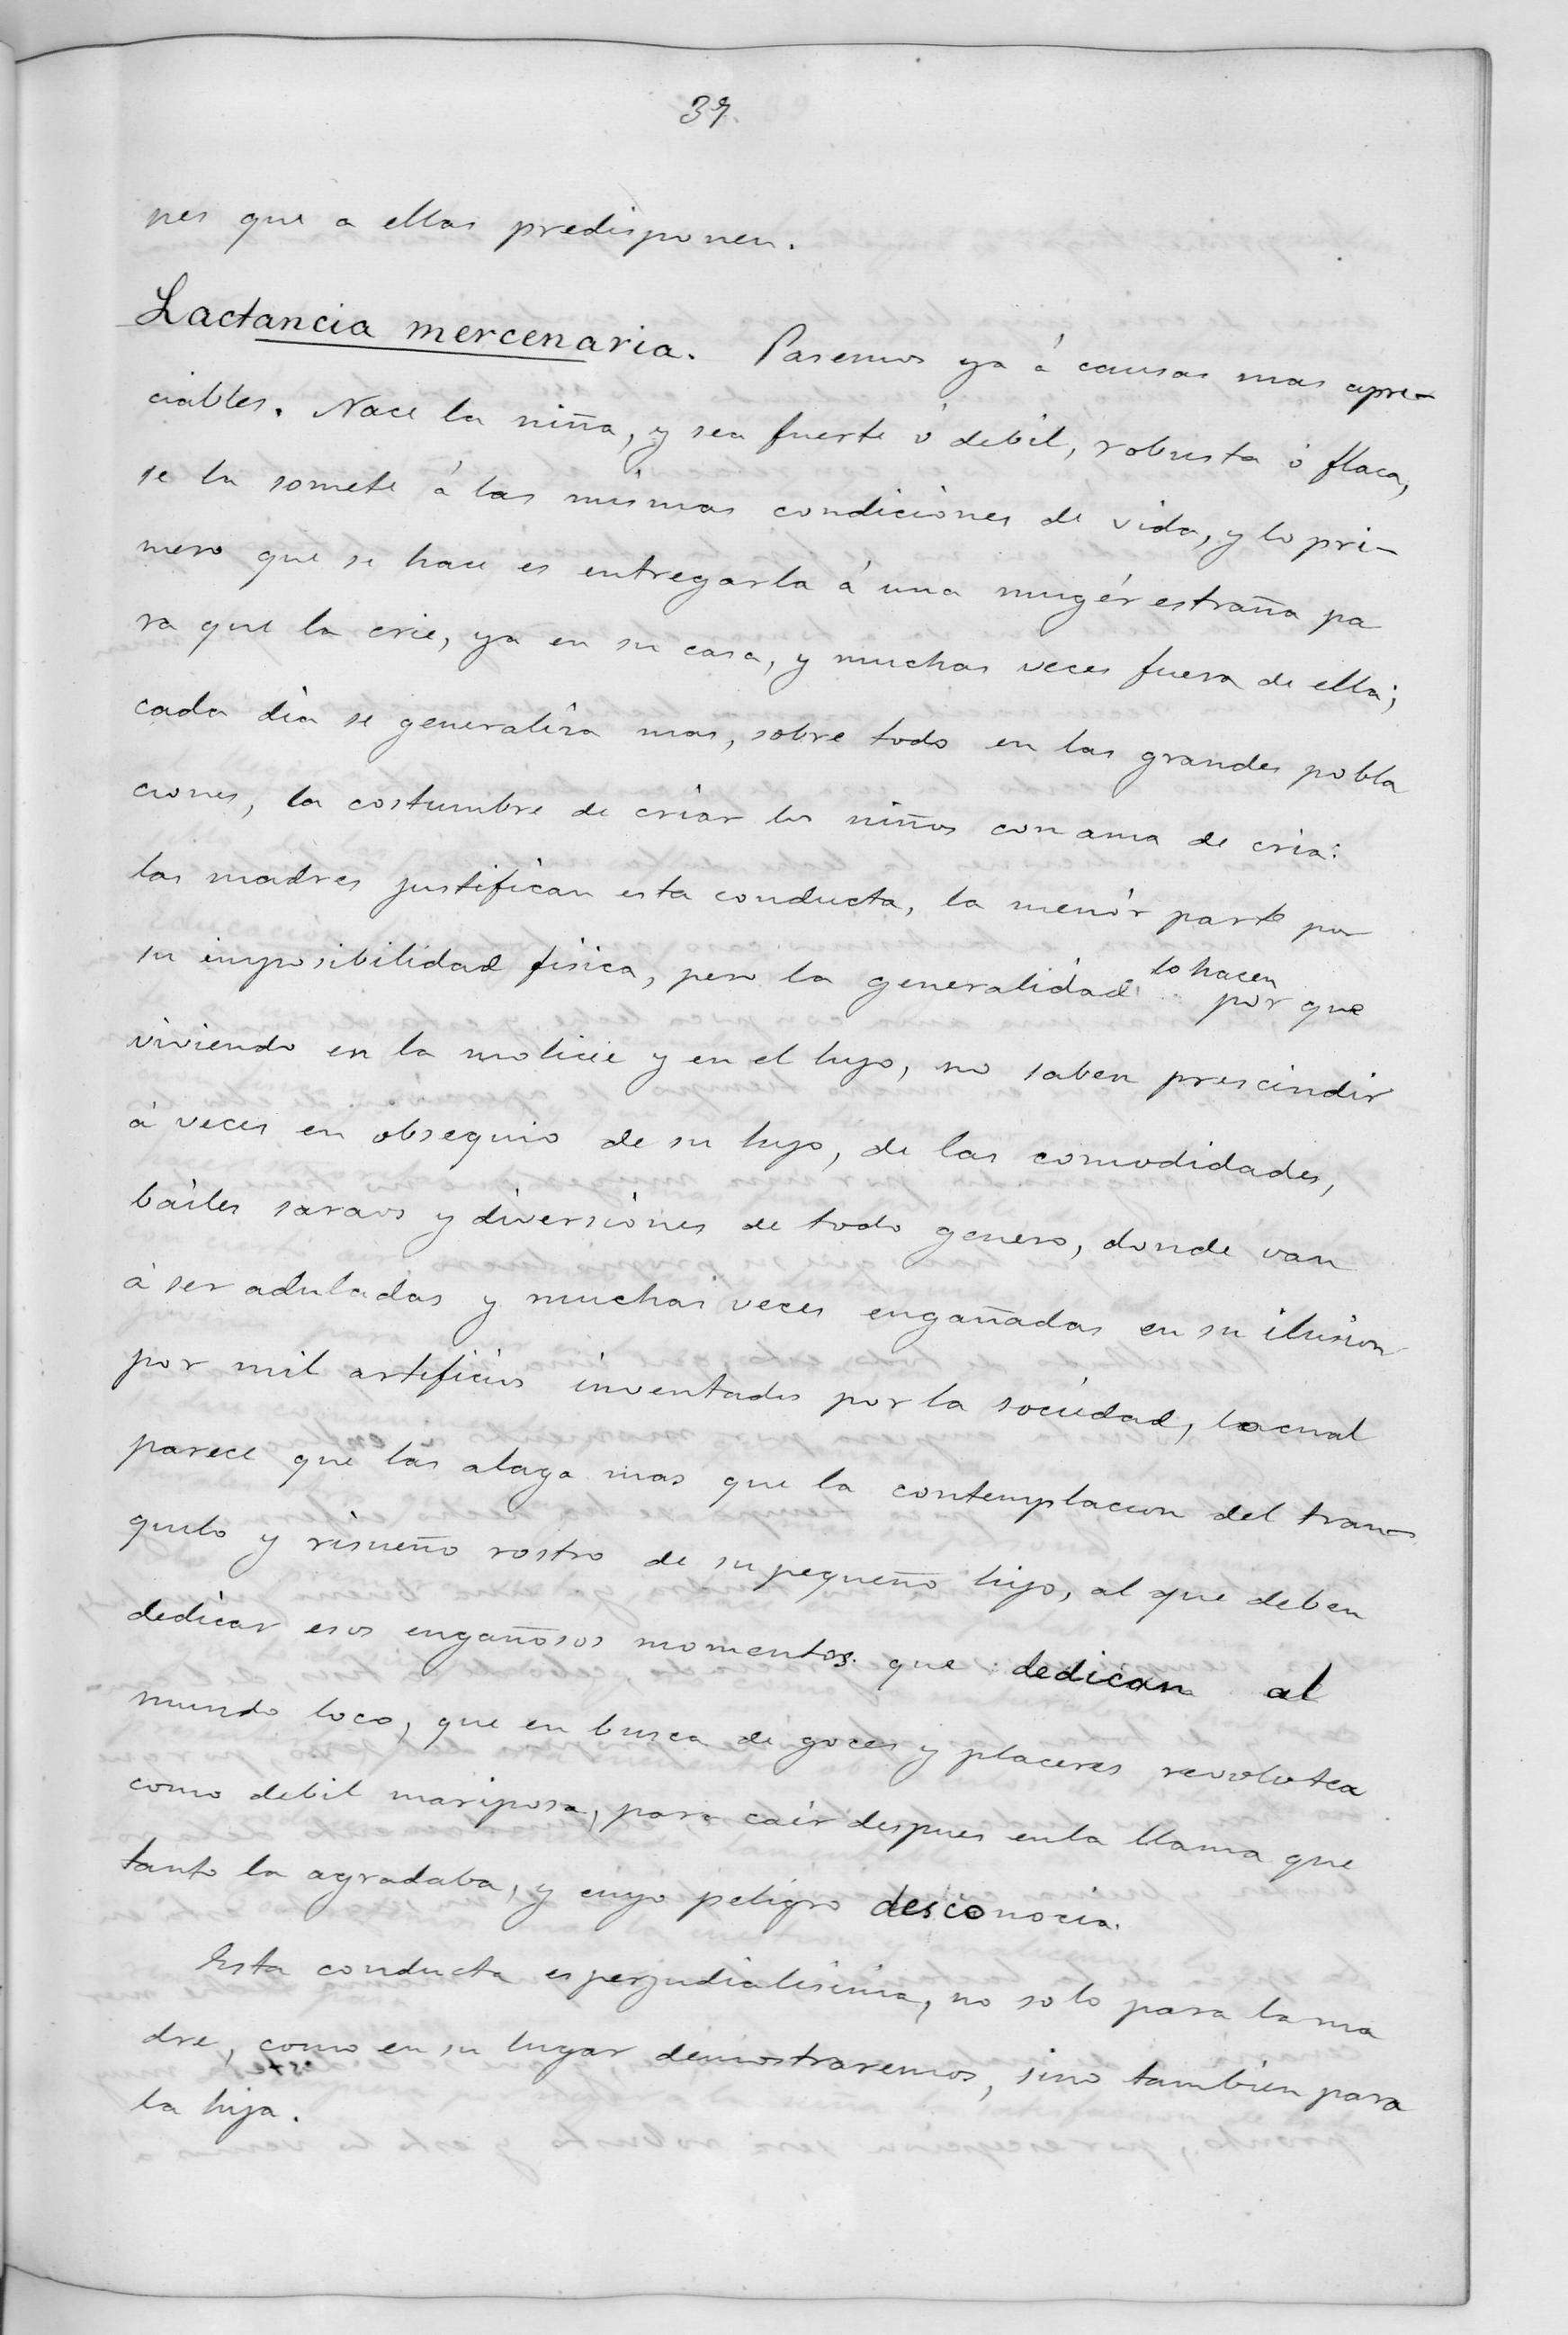 37.
nes que a ellas predisponen.
Lactancia mercenaria. Pasemos ya á causas mas apre-
ciables. Nace la niña, y sea fuerte ó debil, robusta ó flaca,
se la somete á las mismas condiciones de vida, y lo pri-
mero que se hace es entregarla á una mugér estraña pa
ra que la crie, ya en su casa, y muchas veces fuera de ella;
cada dia se generaliza mas, sobre todo en las grandes pobla
ciones, la costumbre de criar los niños con ama de cria:
las madres justifican esta conducta, la menór parte por
su imposibilidad fisica, pero la generalidad lo hacen por que
viviendo en la molicie y en el lujo, no saben prescindir
á veces en obsequio de su hijo, de las comodidades,
bailes saraos y diversiones de todo genero, donde van
á ser aduladas y muchas veces engañadas en su ilusion
por mil artificios inventados por la sociedad, lo cual
parece que las alaga mas que la contemplacion del tran-
quilo y risueño rostro de su pequeño hijo, al que deben
dedicar esos engañosos momentos que dedican al
mundo loco, que en busca de goces y placeres revolotea
como debil mariposa, para caér despues en la llama que
tanto la agradaba, y cuyo peligro desconocia.
Esta conducta es perjudicialisima, no solo para la ma
dre, como en su lugar demostraremos, sino tambien para
la hija.